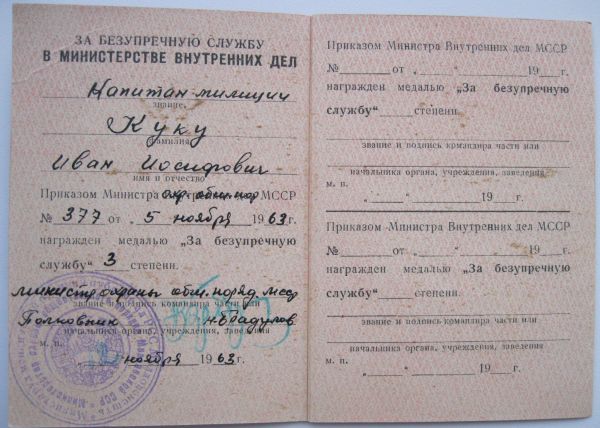 ЗА БЕЗУПРЕЧНУЮ СЛУЖБУ
В МИНИСТЕРСТВЕ ВНУТРЕННИХ ДЕЛ
Капитан милиции
звание,
Куку
фамилия
Иван Иосифович
имя и отчество
Приказом Министра охр. общ. пор МССР
№ 377 от „ 5 ноября 1963 г.
награжден медалью „За безупречную
службу“ 3 степени.
министр охраны общ. поряд. мсср
звание и подпись командира части или
Полковник Н. Брадулов
начальника органа, учреждения, заведения
м. п.
ноября 1963 г.
Приказом Министра Внутренних дел МССР
№ от „ “ 19 г.
награжден медалью „За безупречную
службу“ степени.
звание и подпись командира части или
начальника органа, учреждения, заведения
м. п.
„ “ 19 г.
Приказом Министра Внутренних дел МССР
№ от „ “ 19 г.
награжден медалью „За безупречную
службу“ степени.
звание и подпись командира части или
начальника органа, учреждения, заведения
м. п.
„ “ 19 г.